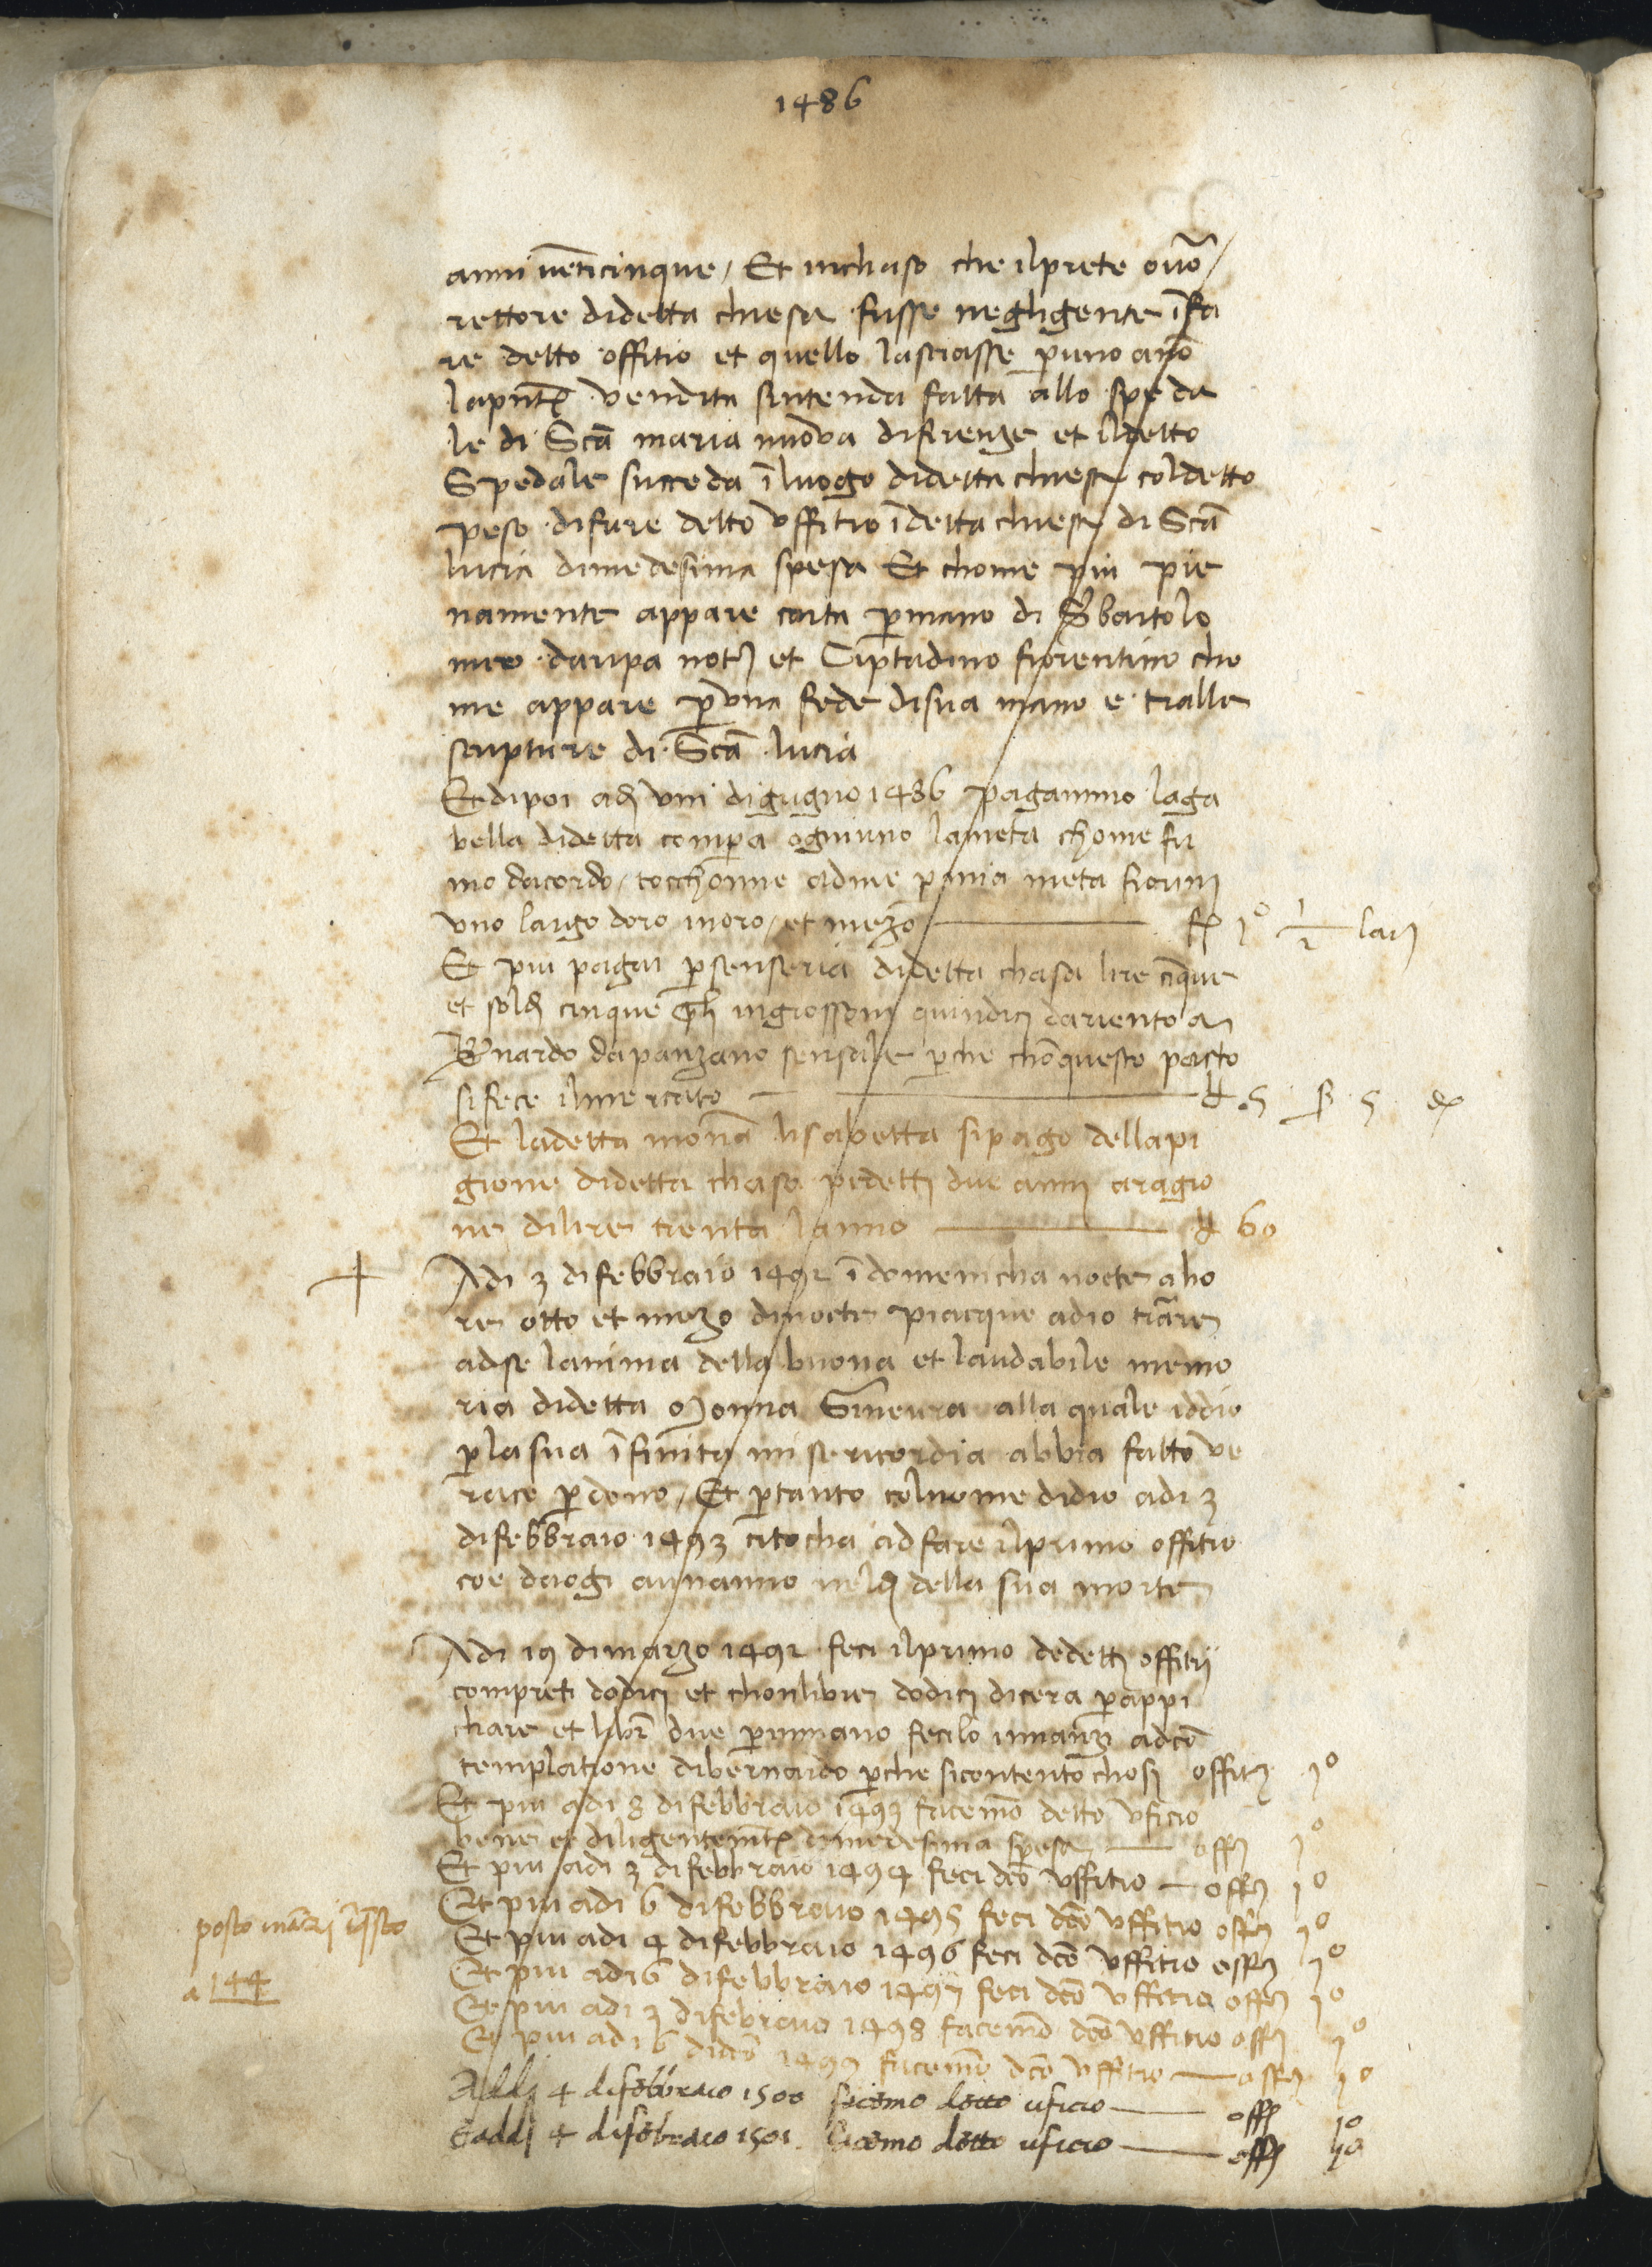 1486
anni venticinque / Et inchaso che ilprete ovō /
rettore didetta chiesa fusse negligente ī fa
re detto offitio et quello lasciasse p uno anō
lapnte vendita sintenda fatta allo speda
le di Scā maria nuova difirenze et ildetto
Spedale succeda ī luogo didetta chiesa coldetto
peso difare detto uffitio ī detta chiesa di Scā
lucia dimedesima spesa Et chome piu pie
namente appare carta p mano di S bartolo
meo daripa not et Ciptadino fiorentino cho
me appare p una fede disua mano e tralle
scripture di Scā lucia
Et dipoi ad viii digiugno 1486 pagammo laga
bella didetta compa ogniuno lameta chome fu
mo dacordo / tocchonne adme p mia meta fiorini
uno largo doro inoro / et mezo f 1º 1/2 lar
Et piu pagai p senseria didetta chasa lire cīque
et sold cinque ingrossoni quindici dariento a
Bnardo dapanzano sensale pche chō questo pacto
sifece ilmercato ₶ 5 ß 5 d
Et ladetta monā lisabetta sipago dellapi
gione didetta chasa pedetti due anni aragio
ne dilire trenta lanno ₶ 60
Adi 3 difebbraio 1492 ī domenicha nocte a ho
re otto et mezo dinocte piacque adio trarre
adse lanima della buona et laudabile memo
ria didetta Monna Ginevra alla quale iddio
p lasua īfinita misericordia abbia fatto ve
race pdono / Et ptanto colnome didio adi 3
difebbraio 1493 citocha adfare ilprimo offitio
coe daogi aunanno neld della sua morte
Adi 19 dimarzo 1492 feci ilprimo dedetti offitii
compreti dodici et chonlibre dodici dicera pappi
chare et libr due pinmano fecilo innanzi adcō
templatione dibernardo pche sicontento chosi offiti 1º
Et piu adi 8 difebbraio 1493 facemo detto uficio
bene et diligentemte dimedesima spesa offi 1º
Et piu adi 3 difebbraio 1494 feci dco uffitio offi 1º
Et piu adi 6 difebbraio 1495 feci dco uffitio offi 1º
Et piu adi 4 difebbraio 1496 feci dco uffitio offi 1º
posto
a 144
Et piu adi 6 difebbraio 1497 feci dco uffitio offi 1º
Et piu adi 3 difebraio 1498 facemo dco uffitio offi 1º
Et piu adi 6 didco 1499 facemo dco uffitio offi 1º
Addi 4 difebbraio 1500 facemo detto uficio offi 1º
E addi 4 difebraio 1501 facemo detto uficio offi 1º